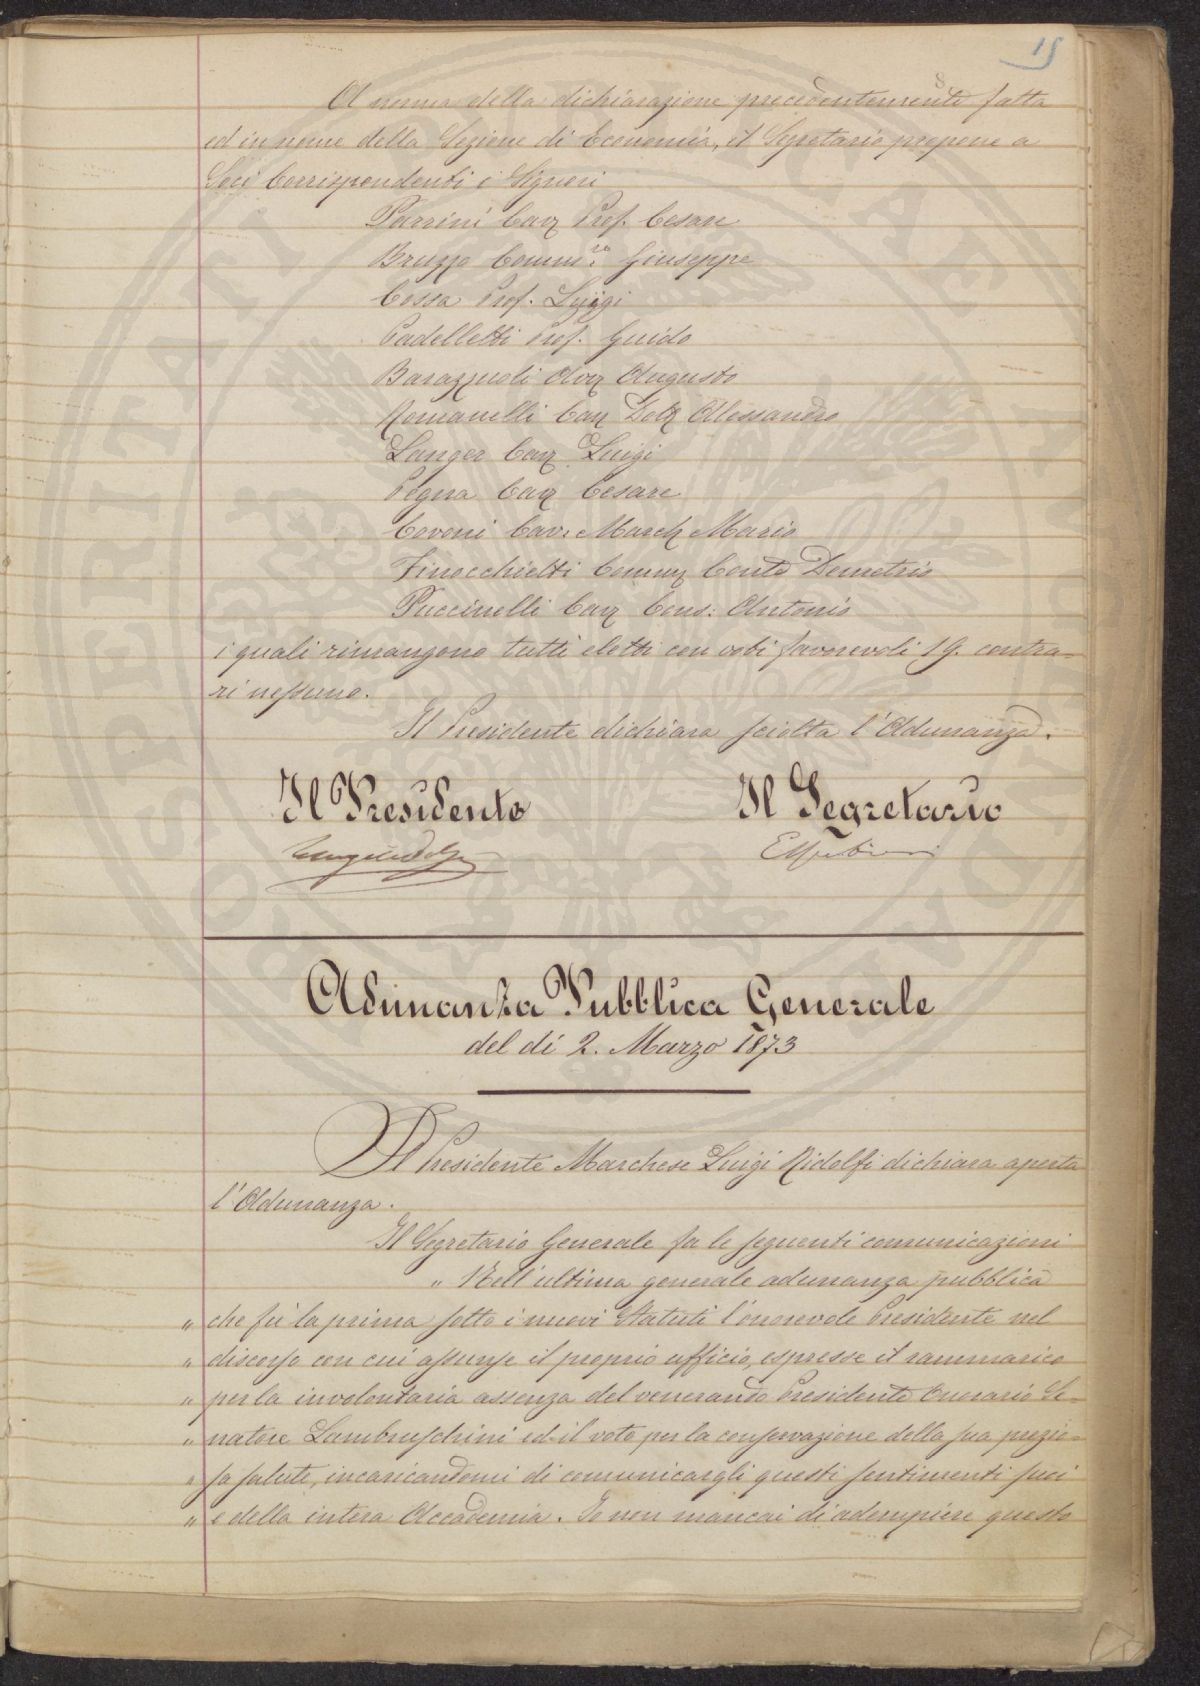 15
A norma della dichiarazione precedentemente fatta
ed in nome della Sezione di Economia, il Segretario propone a
Soci Corrispondenti i Signori
Parrini Cav. Prof. Cesare
Bruzzo Comm.re Giuseppe
Cossa Prof. Luigi
Padelletti Prof. Guido
Barazzuoli Avv. Augusto
Romanelli Cav. Dott. Alessandro
Langer Cav. Luigi
Pegna Cav. Cesare
Covoni Cav. March. Mario
Finocchietti Comm. Conte Demetrio
Puccinelli Cav. Cons: Antonio
i quali rimangono tutti eletti con voti favorevoli 19. contra-
ri nessuno.
Il Presidente dichiara sciolta l'Adunanza.
Il Presidente Il Segretario
Adunanza Pubblica Generale
del dì 2. Marzo 1873
Il Presidente Marchese Luigi Ridolfi dichiara aperta
l'Adunanza.
Il Segretario Generale fa le seguenti comunicazioni
" Nell'ultima generale adunanza pubblica
" che fu la prima sotto i nuovi Statuti l'onorevole Presidente nel
" discorso con cui assunse il proprio ufficio, espresse il rammarico
" per la involontaria assenza del venerando Presidente Onorario Se-
" natore Lambruschini ed il voto per la conservazione della sua prezio-
" sa salute, incaricandomi di comunicargli questi sentimenti suoi
" e della intera Accademia. Io non mancai di adempiere questo